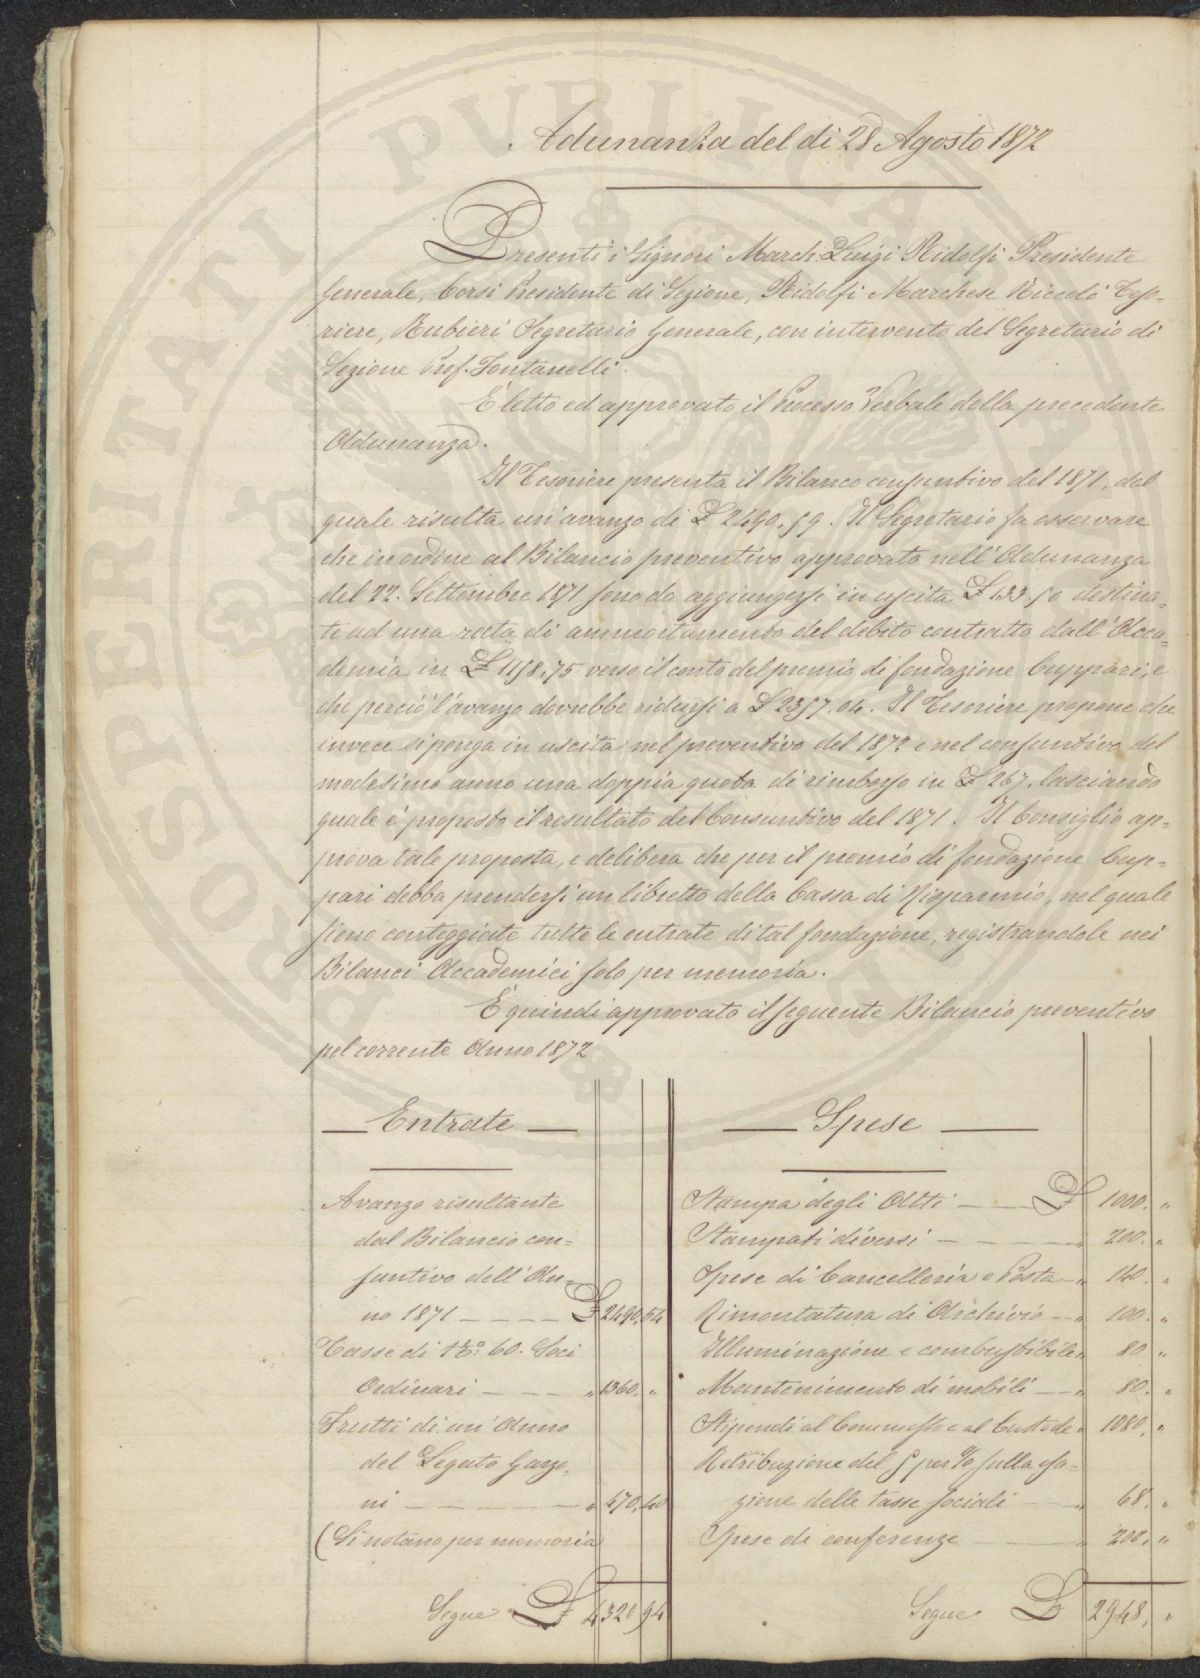 Adunanza del di 28 Agosto 1872
Presenti i Signori March. Luigi Ridolfi Presidente
Generale, Corsi Presidente di Sezione, Ridolfi Marchese Niccolò Teso-
riere, Rubieri Segretario Generale, con intervento del Segretario di
Sezione Prof. Fontanelli.
È letto ed approvato il Processo Verbale della precedente
Adunanza.
Il Tesoriere presenta il Bilancio consuntivo del 1871, dal
quale risulta un'avanzo di £ 2490.59. Il Segretario fa osservare
che in ordine al Bilancio preventivo approvato nell'Adunanza
del 22. Settembre 1871 sono da aggiungersi in uscita £ 133.50 destina-
te ad una rata di ammortamento del debito contratto dall'Acca-
demia in £ 1158.75 verso il conto del premio di fondazione Cuppari, e
che perciò l'avanzo dovrebbe ridursi a £ 2357.04. Il Tesoriere propone che
invece si ponga in uscita nel preventivo del 1872 e nel consuntivo del
medesimo anno una doppia quota di rimborso in £ 267. lasciando
quale è proposto il resultato del Consuntivo del 1871. Il Consiglio ap-
prova tale proposta, e delibera che per il premio di fondazione Cup-
pari debba prendersi un libretto della Cassa di Risparmio, nel quale
sieno conteggiate tutte le entrate di tal fondazione, registrandole nei
Bilanci Accademici solo per memoria.
È quindi approvato il seguente Bilancio preventivo
pel corrente Anno 1872
Entrate
Avanzo risultante
dal Bilancio con-
suntivo dell'An-
no 1871 £ 2490,54
Tasse di N.° 60. Soci
Ordinari " 1360. "
Frutti di un'Anno
del Legato Garzo-
ni " 470,40
(Si notano per memoria
Segue £ 4320,94
Spese
Stampa degli Atti £ 1000. "
Stampati diversi " 200. "
Spese di Cancelleria e Posta " 140. "
Rimontatura di Archivio " 100. "
Illuminazione e combustibile " 80 "
Mantenimento di mobili " 80. "
Stipendi al Commesso e al Custode " 1080, "
Retribuzione del 5 per % sulla esa-
zione delle tasse sociali " 68. "
Spese di conferenze " 200. "
Segue £ 2948, "
PROSPERITATI PUBLICAE